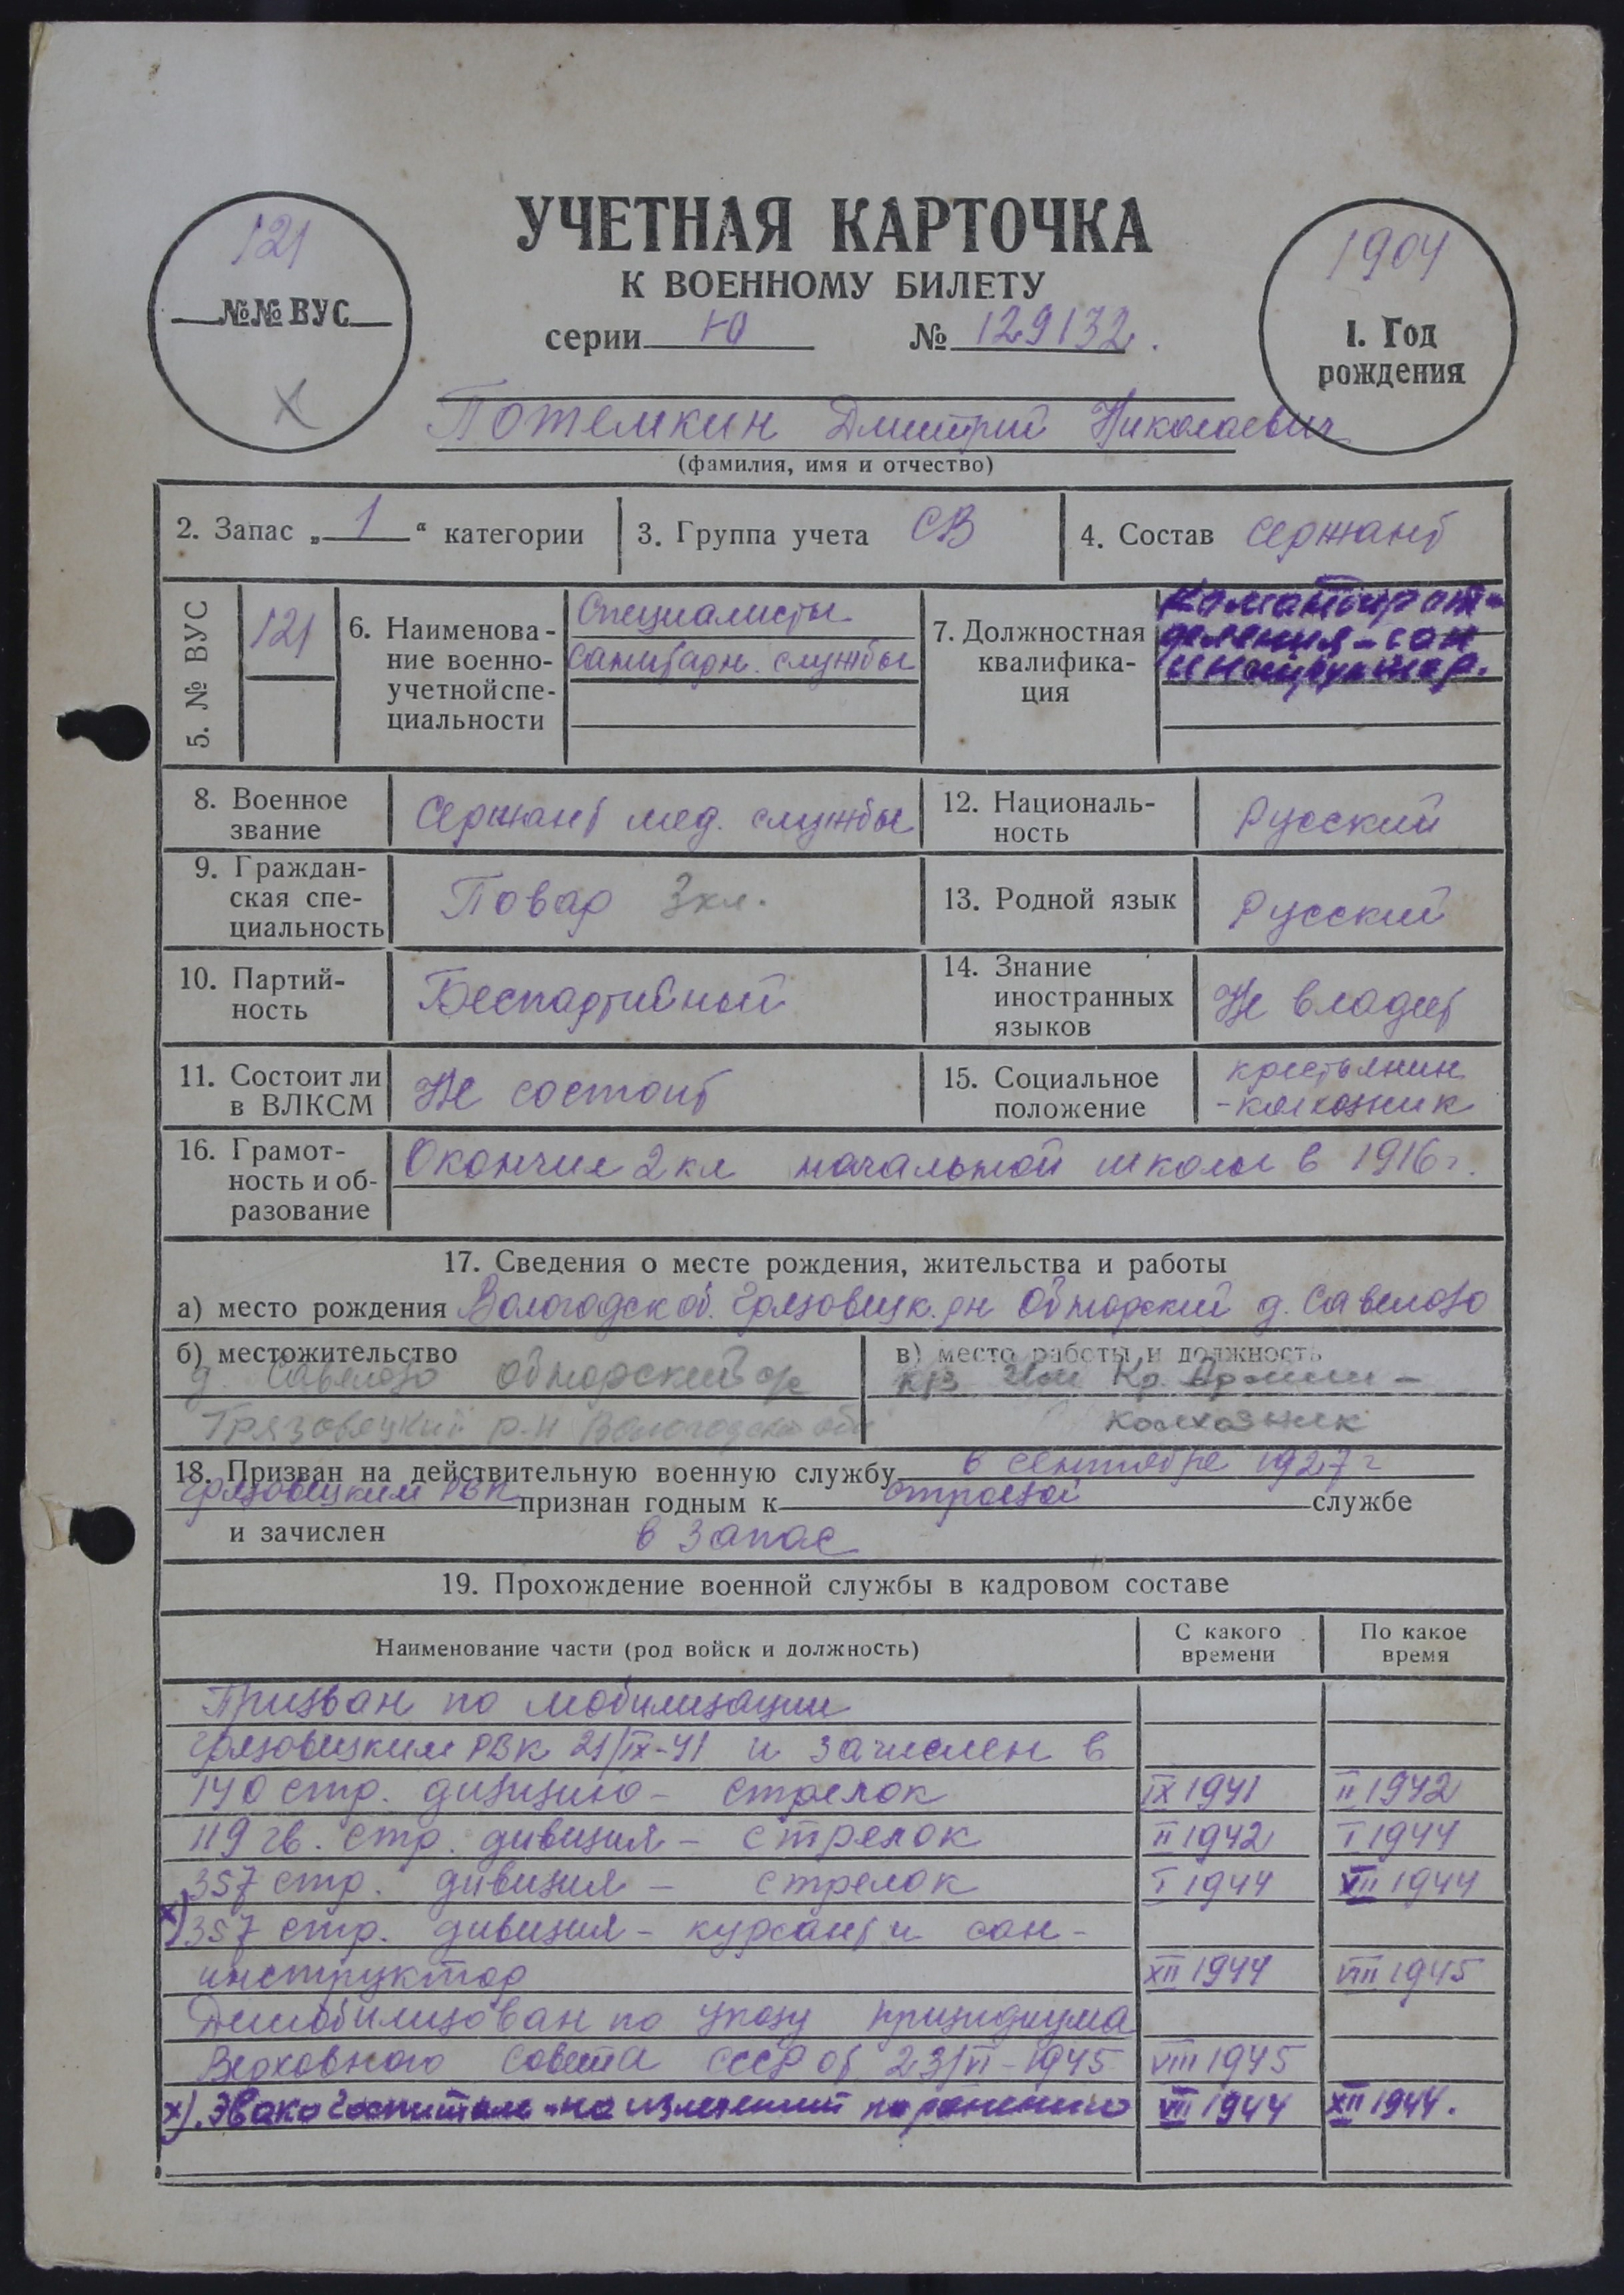 УЧЕТНАЯ КАРТОЧКА
К ВОЕННОМУ БИЛЕТУ
серии Ю № 129132.
121
№№ ВУС
Х
1904
1. Год
рождения
Потемкин Дмитрий Николаевич
(фамилия, имя и отчество)
2. Запас „ 1 “ категории
3. Группа учета СВ
4. Состав сержант
5. № ВУС
121
6. Наименова-
ние военно-
учетной спе-
циальности
Специалисты
санитарн. службы
7. Должностная
квалифика-
ция
Командир от-
деления - сан
инструктор.
8. Военное
звание
Сержант мед. службы
12. Националь-
ность
Русский
9. Граждан-
ская спе-
циальность
Повар 3 кл.
13. Родной язык
Русский
10. Партий-
ность
Беспартийный
14. Знание
иностранных
языков
Не владеет
11. Состоит ли
в ВЛКСМ
Не состоит
15. Социальное
положение
крестьянин
- колхозник
16. Грамот-
ность и об-
разование
Окончил 2 кл начальной школы в 1916 г.
17. Сведения о месте рождения, жительства и работы
а) место рождения Вологодск об. Грязовецк. рн Обнорский д. Савелово
б) местожительство
д. Савелово Обнорский с/с
Грязовецкий р-н Вологодской обл
в) место работы и должность
к/з Кр. Армии -
колхозник
18. Призван на действительную военную службу в сентябре 1927 г
Грязовецким РВК признан годным к строевой службе
и зачислен в запас
19. Прохождение военной службы в кадровом составе
Наименование части (род войск и должность)
С какого
времени
По какое
время
Призван по мобилизации
Грязовецким РВК 21/IX-41 и зачислен в
140 стр. дивизию - стрелок IX 1941 II 1942
119 гв. стр. дивизия - стрелок II 1942 I 1944
357 стр. дивизия - стрелок I 1944 VII 1944
х) 357 стр. дивизия - курсант и сан-
инструктор XII 1944 VIII 1945
Демобилизован по указу призидиума
Верховного Совета СССР от 23/VI-1945 VIII 1945
х). Эвакогоспиталь - на излечении по ранению VII 1944 XII 1944.